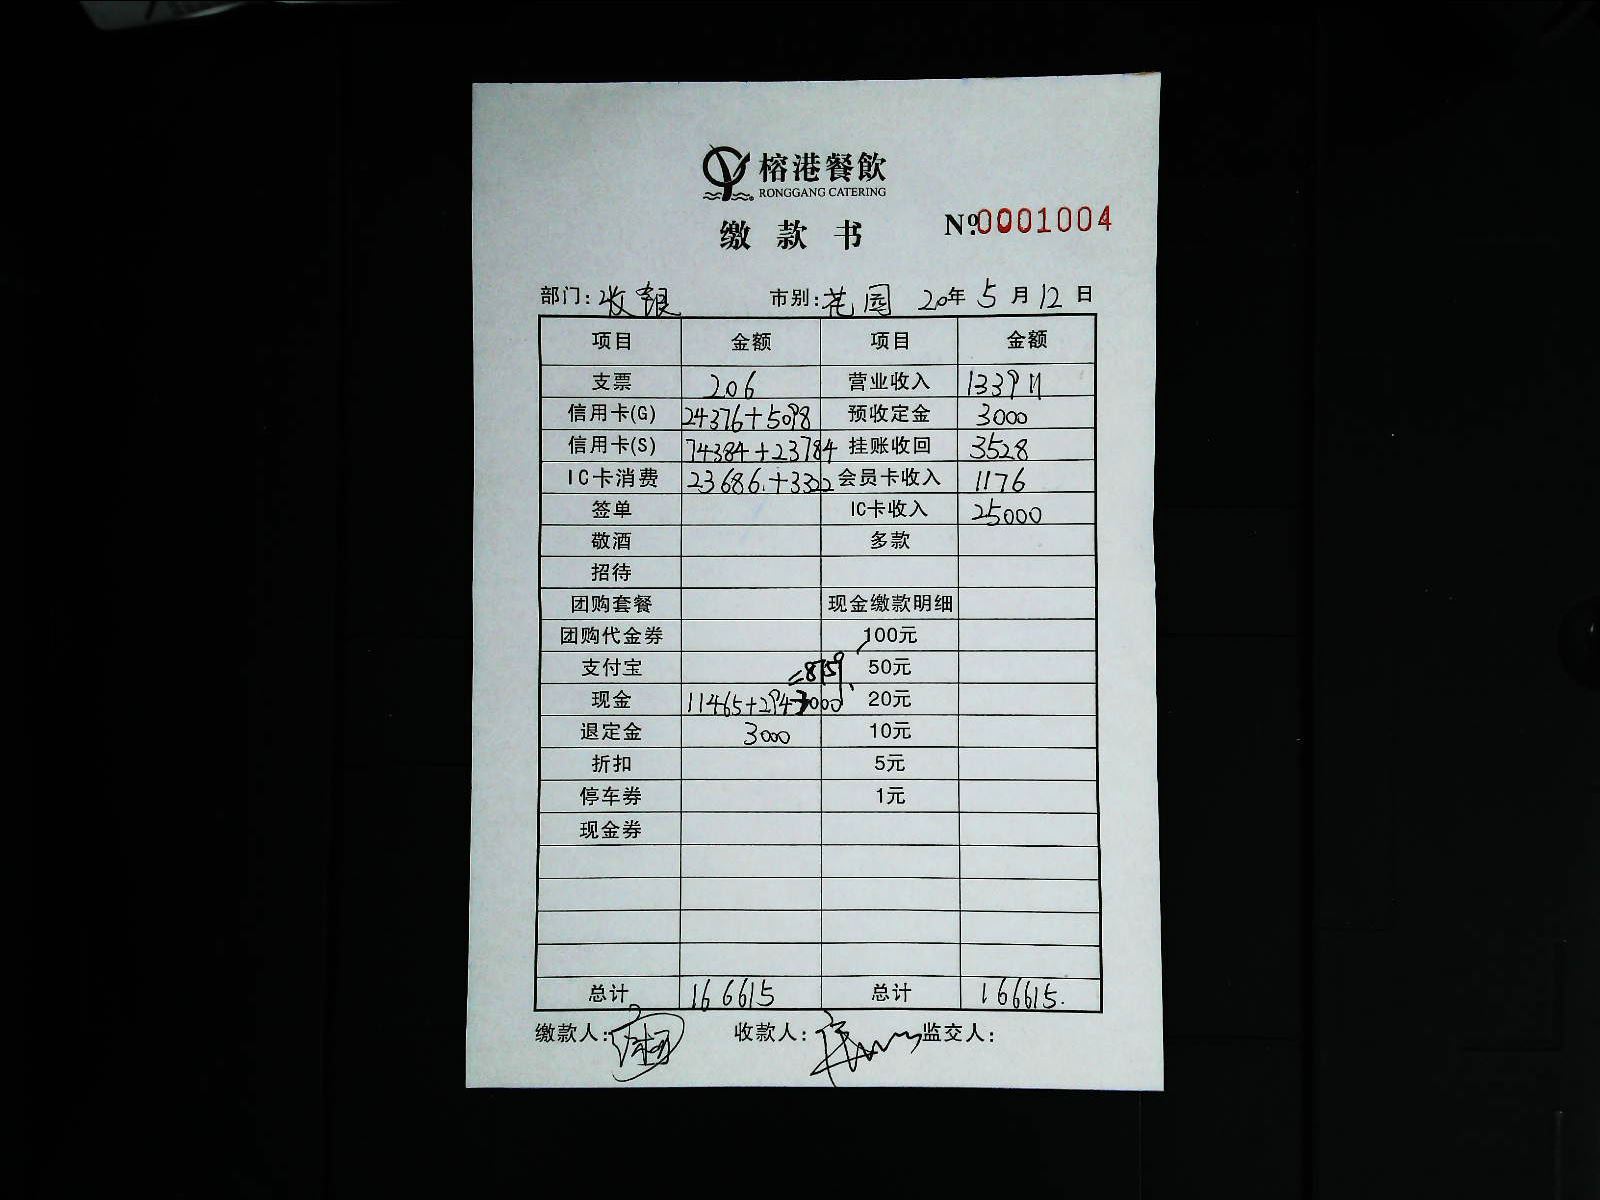 榕港餐飲
RONGGANG CATERING
缴款书 Nº.0001004
部门: 收银 市别: 花园 20年 5月 12日
项目 金额 项目 金额
支票 206 营业收入 133911
信用卡(G) 24376+5098 预收定金 3000
信用卡(S) 74384+23784 挂账收回 3528
IC卡消费 23686.+3322 会员卡收入 1176
签单 IC卡收入 25000
敬酒 多款
招待
团购套餐 现金缴款明细
团购代金券 100元
支付宝 =8759 50元
现金 11465+294-3000 20元
退定金 3000 10元
折扣 5元
停车券 1元
现金券
总计 166615 总计 166615.
缴款人: 收款人: 监交人: